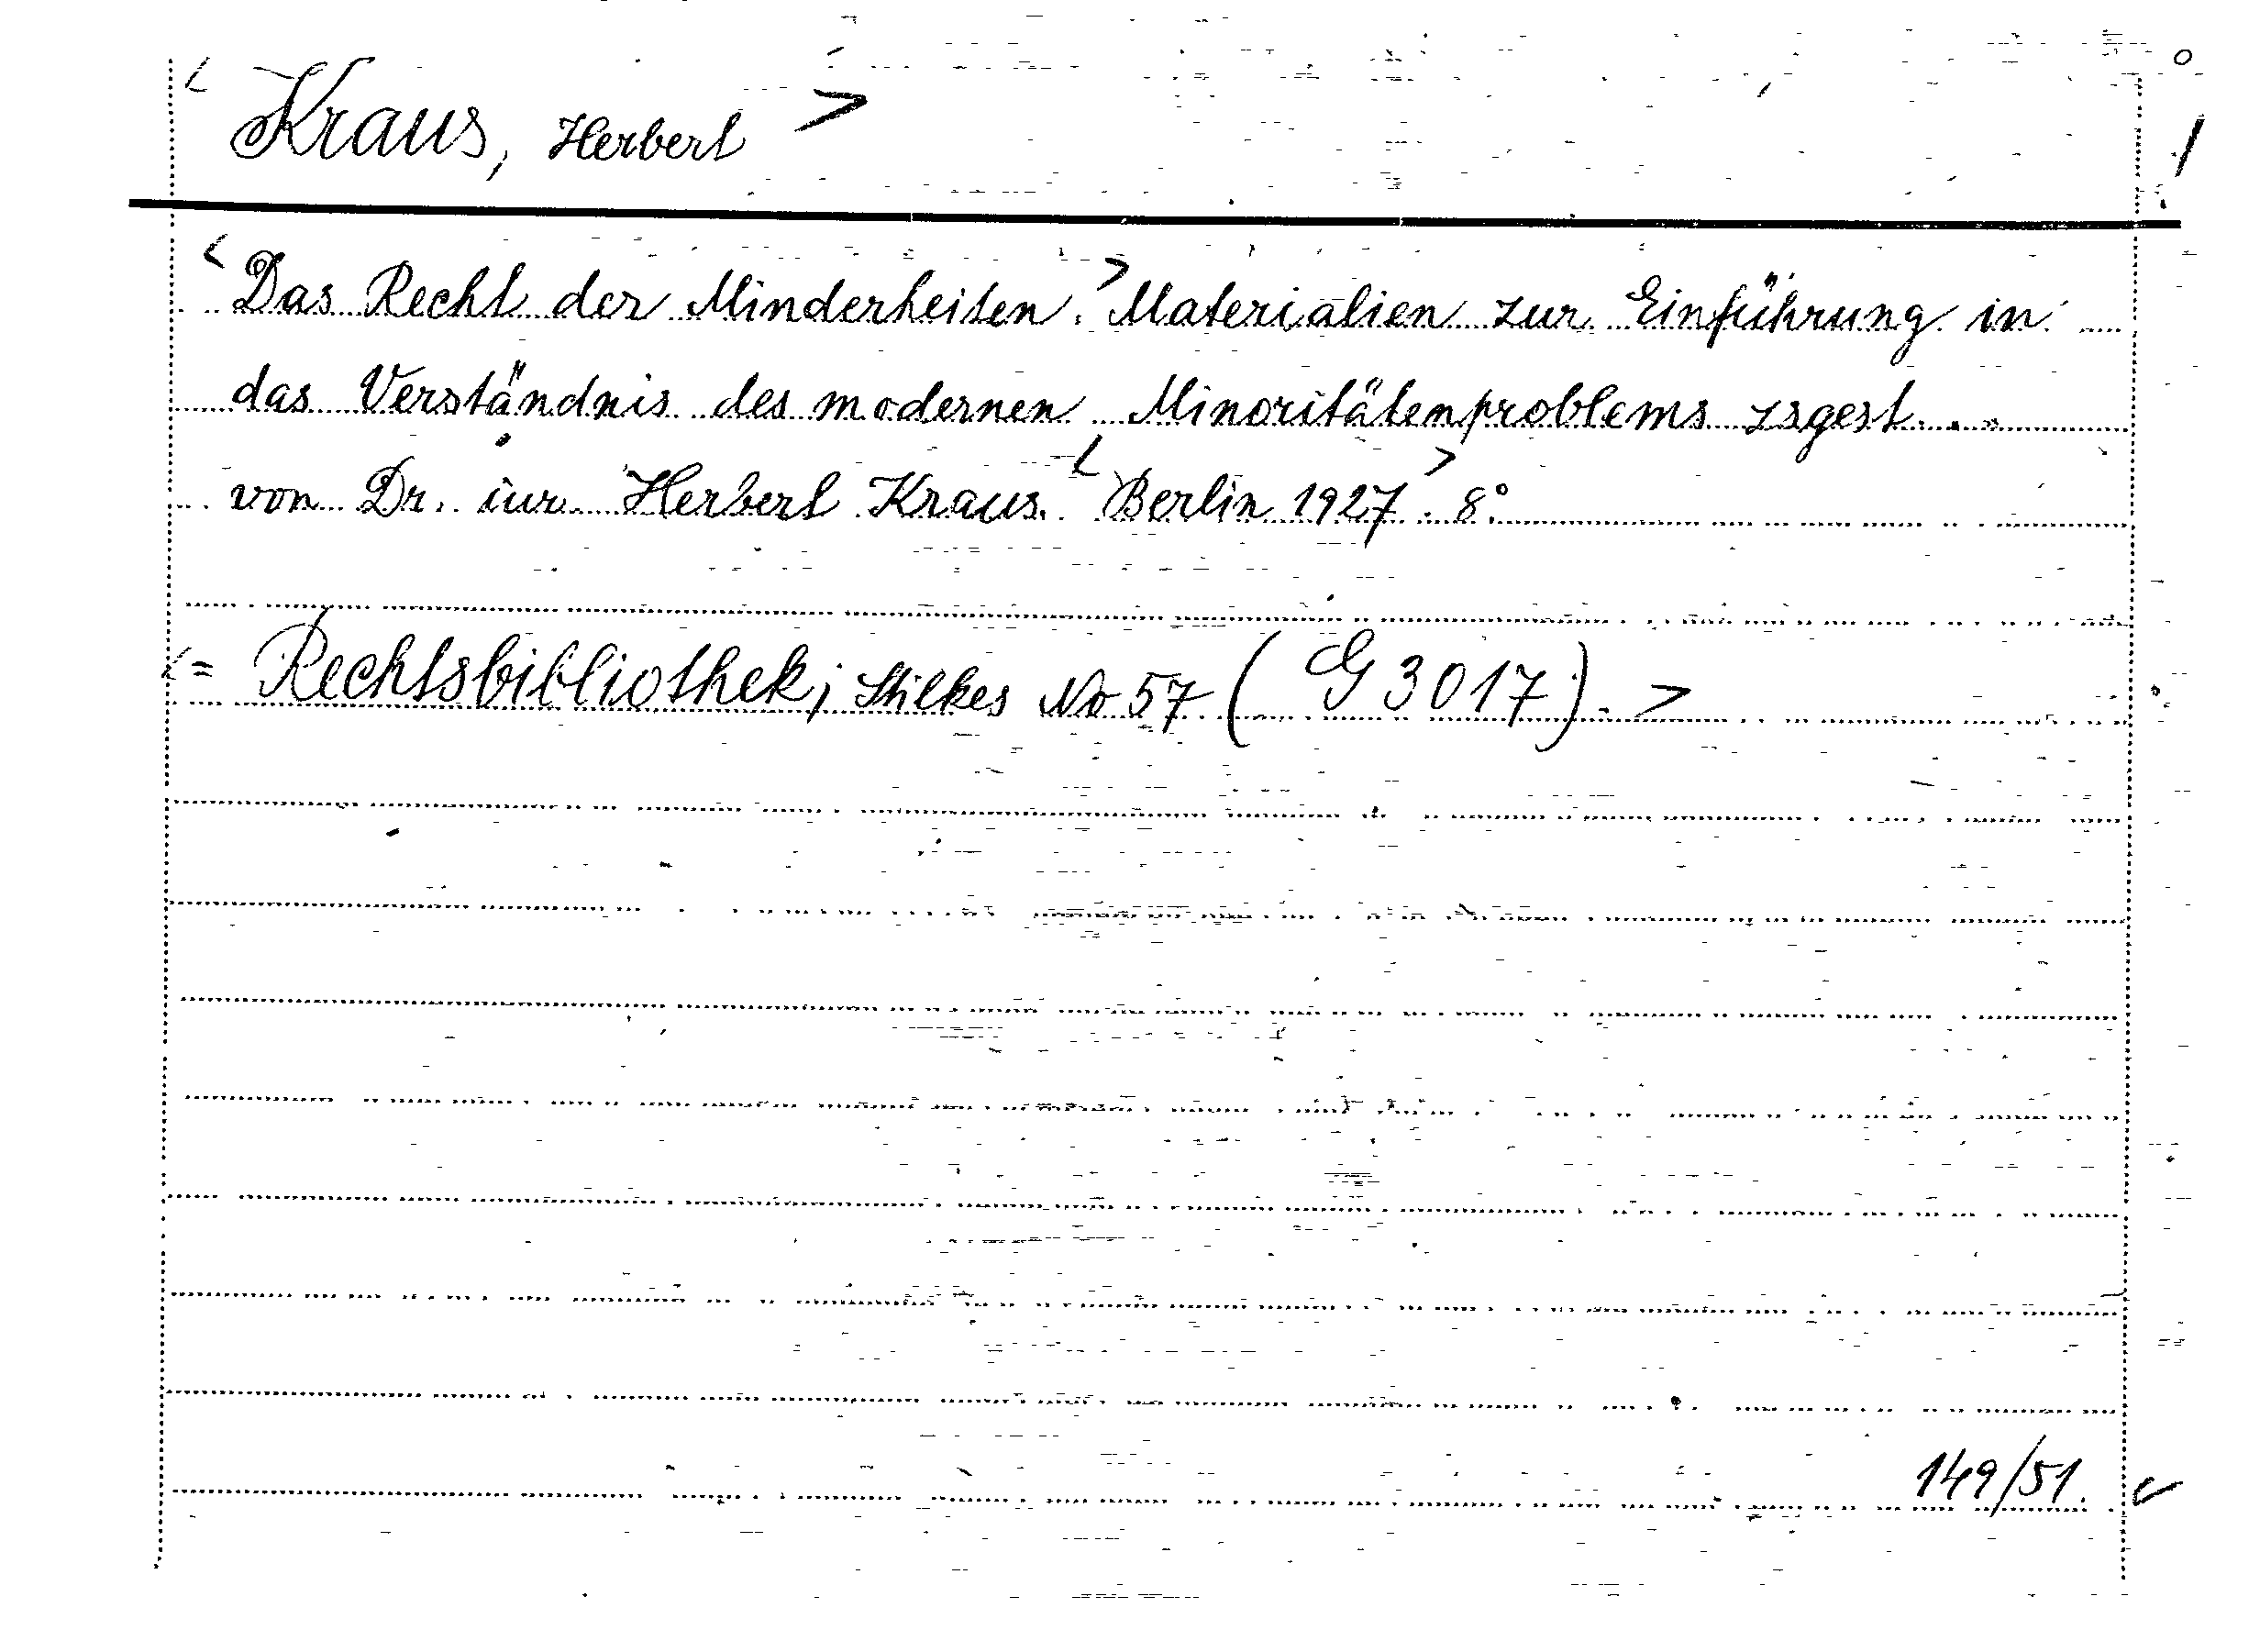 < Kraus, Herbert >
< Das Recht der Minderheiten. > Materialien zur Einführung in
das Verständnis des modernen Minoritätenproblems zsgest. . .
von Dr. iur. Herbert Kraus. < Berlin 1927 > 8°
<= Rechtsbibliothek; Stilkes No 57 ( G 3017 ). >
149/51.